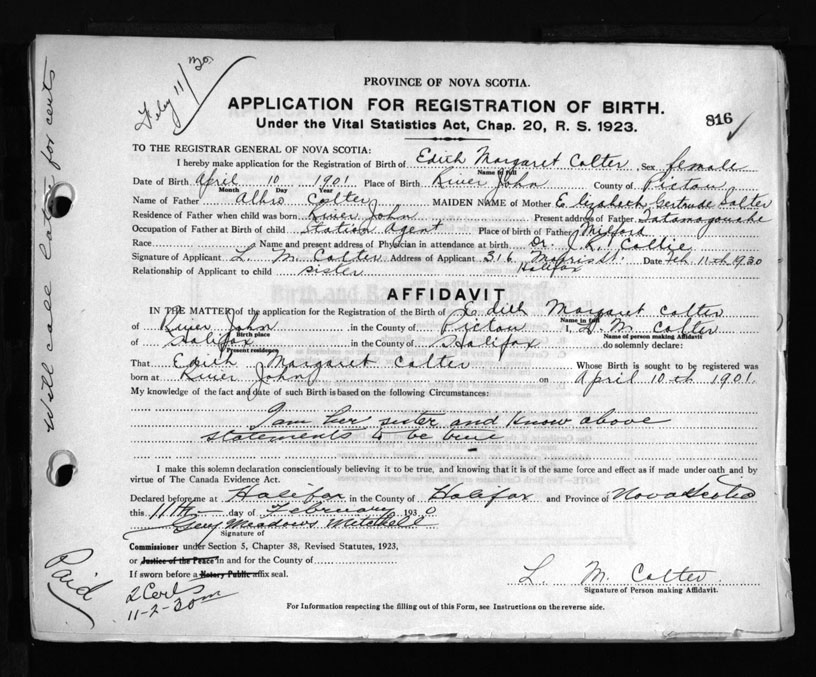 Feby 11/30.
PROVINCE OF NOVA SCOTIA.
APPLICATION FOR REGISTRATION OF BIRTH.
Under the Vital Statistics Act, Chap. 20, R. S. 1923.
816
TO THE REGISTRAR GENERAL OF NOVA SCOTIA:
I hereby make application for the Registration of Birth of Edith Margaret Colter Sex female
Name in full
Date of Birth April 10 1901 Place of Birth River John County of Pictou
Month Day Year
Name of Father Albro Colter MAIDEN NAME of Mother Elizabeth Gertrude Salter
Residence of Father when child was born River John Present address of Father Tatamagouche
Occupation of Father at Birth of child Station Agent Place of birth of Father Milford
Race Name and present address of Physician in attendance at birth Dr. J. R. Collie
Signature of Applicant L. M. Colter Address of Applicant 316 Morris St. Date Feb 11th 1930
Relationship of Applicant to child sister Halifax
AFFIDAVIT
IN THE MATTER of the application for the Registration of the Birth of Edith Margaret Colter
Name in full
of River John in the County of Pictou I, L. M. Colter
Birth place Name of person making Affidavit
of Halifax in the County of Halifax do solemnly declare:
Present residence
That Edith Margaret Colter Whose Birth is sought to be registered was
born at River John on April 10th 1901.
My knowledge of the fact and date of such Birth is based on the following Circumstances:
I am her sister and know above
statements to be true
I make this solemn declaration conscientiously believing it to be true, and knowing that it is of the same force and effect as if made under oath and by
virtue of The Canada Evidence Act.
Declared before me at Halifax in the County of Halifax and Province of Nova Scotia
this 11th day of February 1930
Meadows Mitchell
Signature of
Commissioner under Section 5, Chapter 38, Revised Statutes, 1923,
or Justice of the Peace in and for the County of
If sworn before a Notary Public affix seal.
L. M. Colter
Signature of Person making Affidavit.
For Information respecting the filling out of this Form, see Instructions on the reverse side.
Will call later for certs
Paid
2 Certs
11-2-30